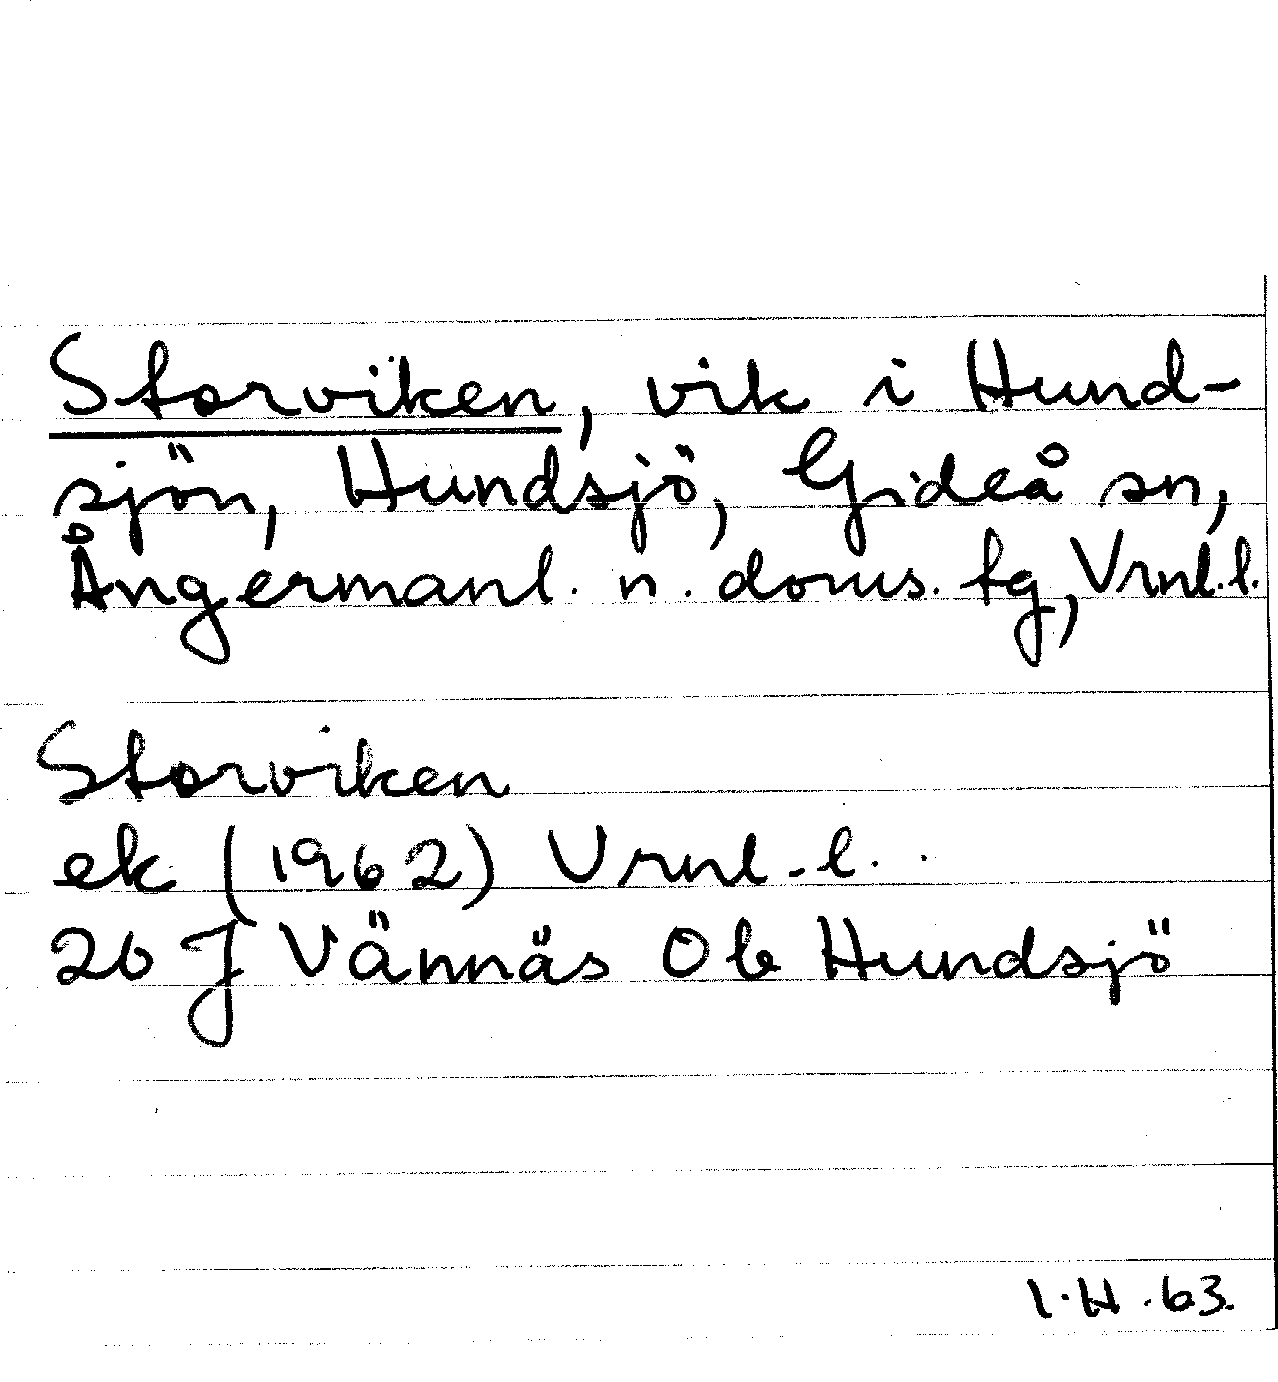 Storviken, vik i Hund-
sjön, Hundsjö, Gideå sn,
Ångermanl. n. doms. tg, Vrnl.l.
Storviken
ek (1962) Vrnl.l.
20 J Vännäs Ob Hundsjö
I.H.63.